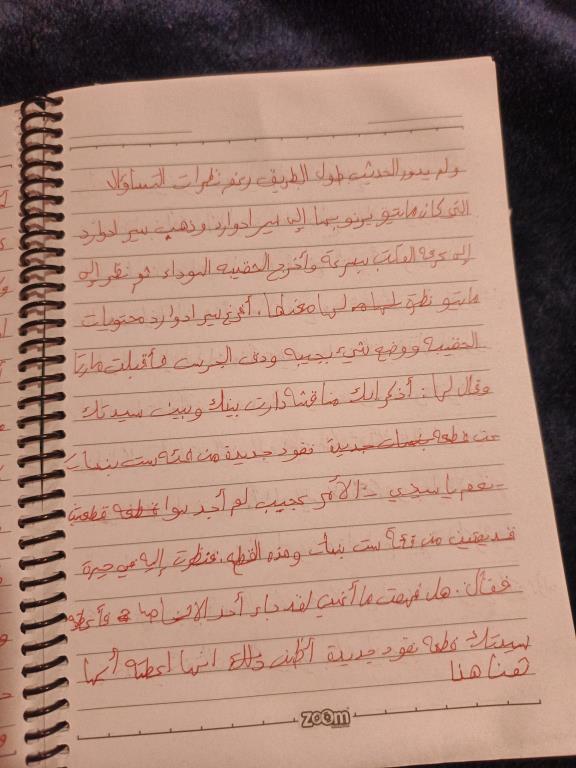 ولم يدور الحديث طول الطريق رغم نظرات التساؤلا
التى كان ماثيو يرنو بها إلى سير ادوارد وذهب سير ادوارد
إلى غرفة المكتب بسرعة وأخرج الحقيبه السوداء ثم نظر إلى
ماثيو نظرة لها مغزاها. أفرغ سير ادوارد محتويات
الحقيبة ووضع شيئ بجيبه ودق الجرس فأقبلت مارثا
وقال لها: أذكر انك مناقشة دارت بينك وبين سيدتك
عن قطعة بنسات جديدة نقود جديدة من فئة ست بنسات
- نعم يا سيدي - الأمر عجيب لم أجد سوا قطعة قطعتين
قديمتين من فئة ست بنسات وهذه القطعه. فنظرت إليه في حيرة
فقال. هل فهمت ما أعنى لقد جاء أحد الاشخاص فأعطته
سيدتك قطعة نقود جديدة أظن ذلك انها اعطته أياها
ثمنا هنا
zoom